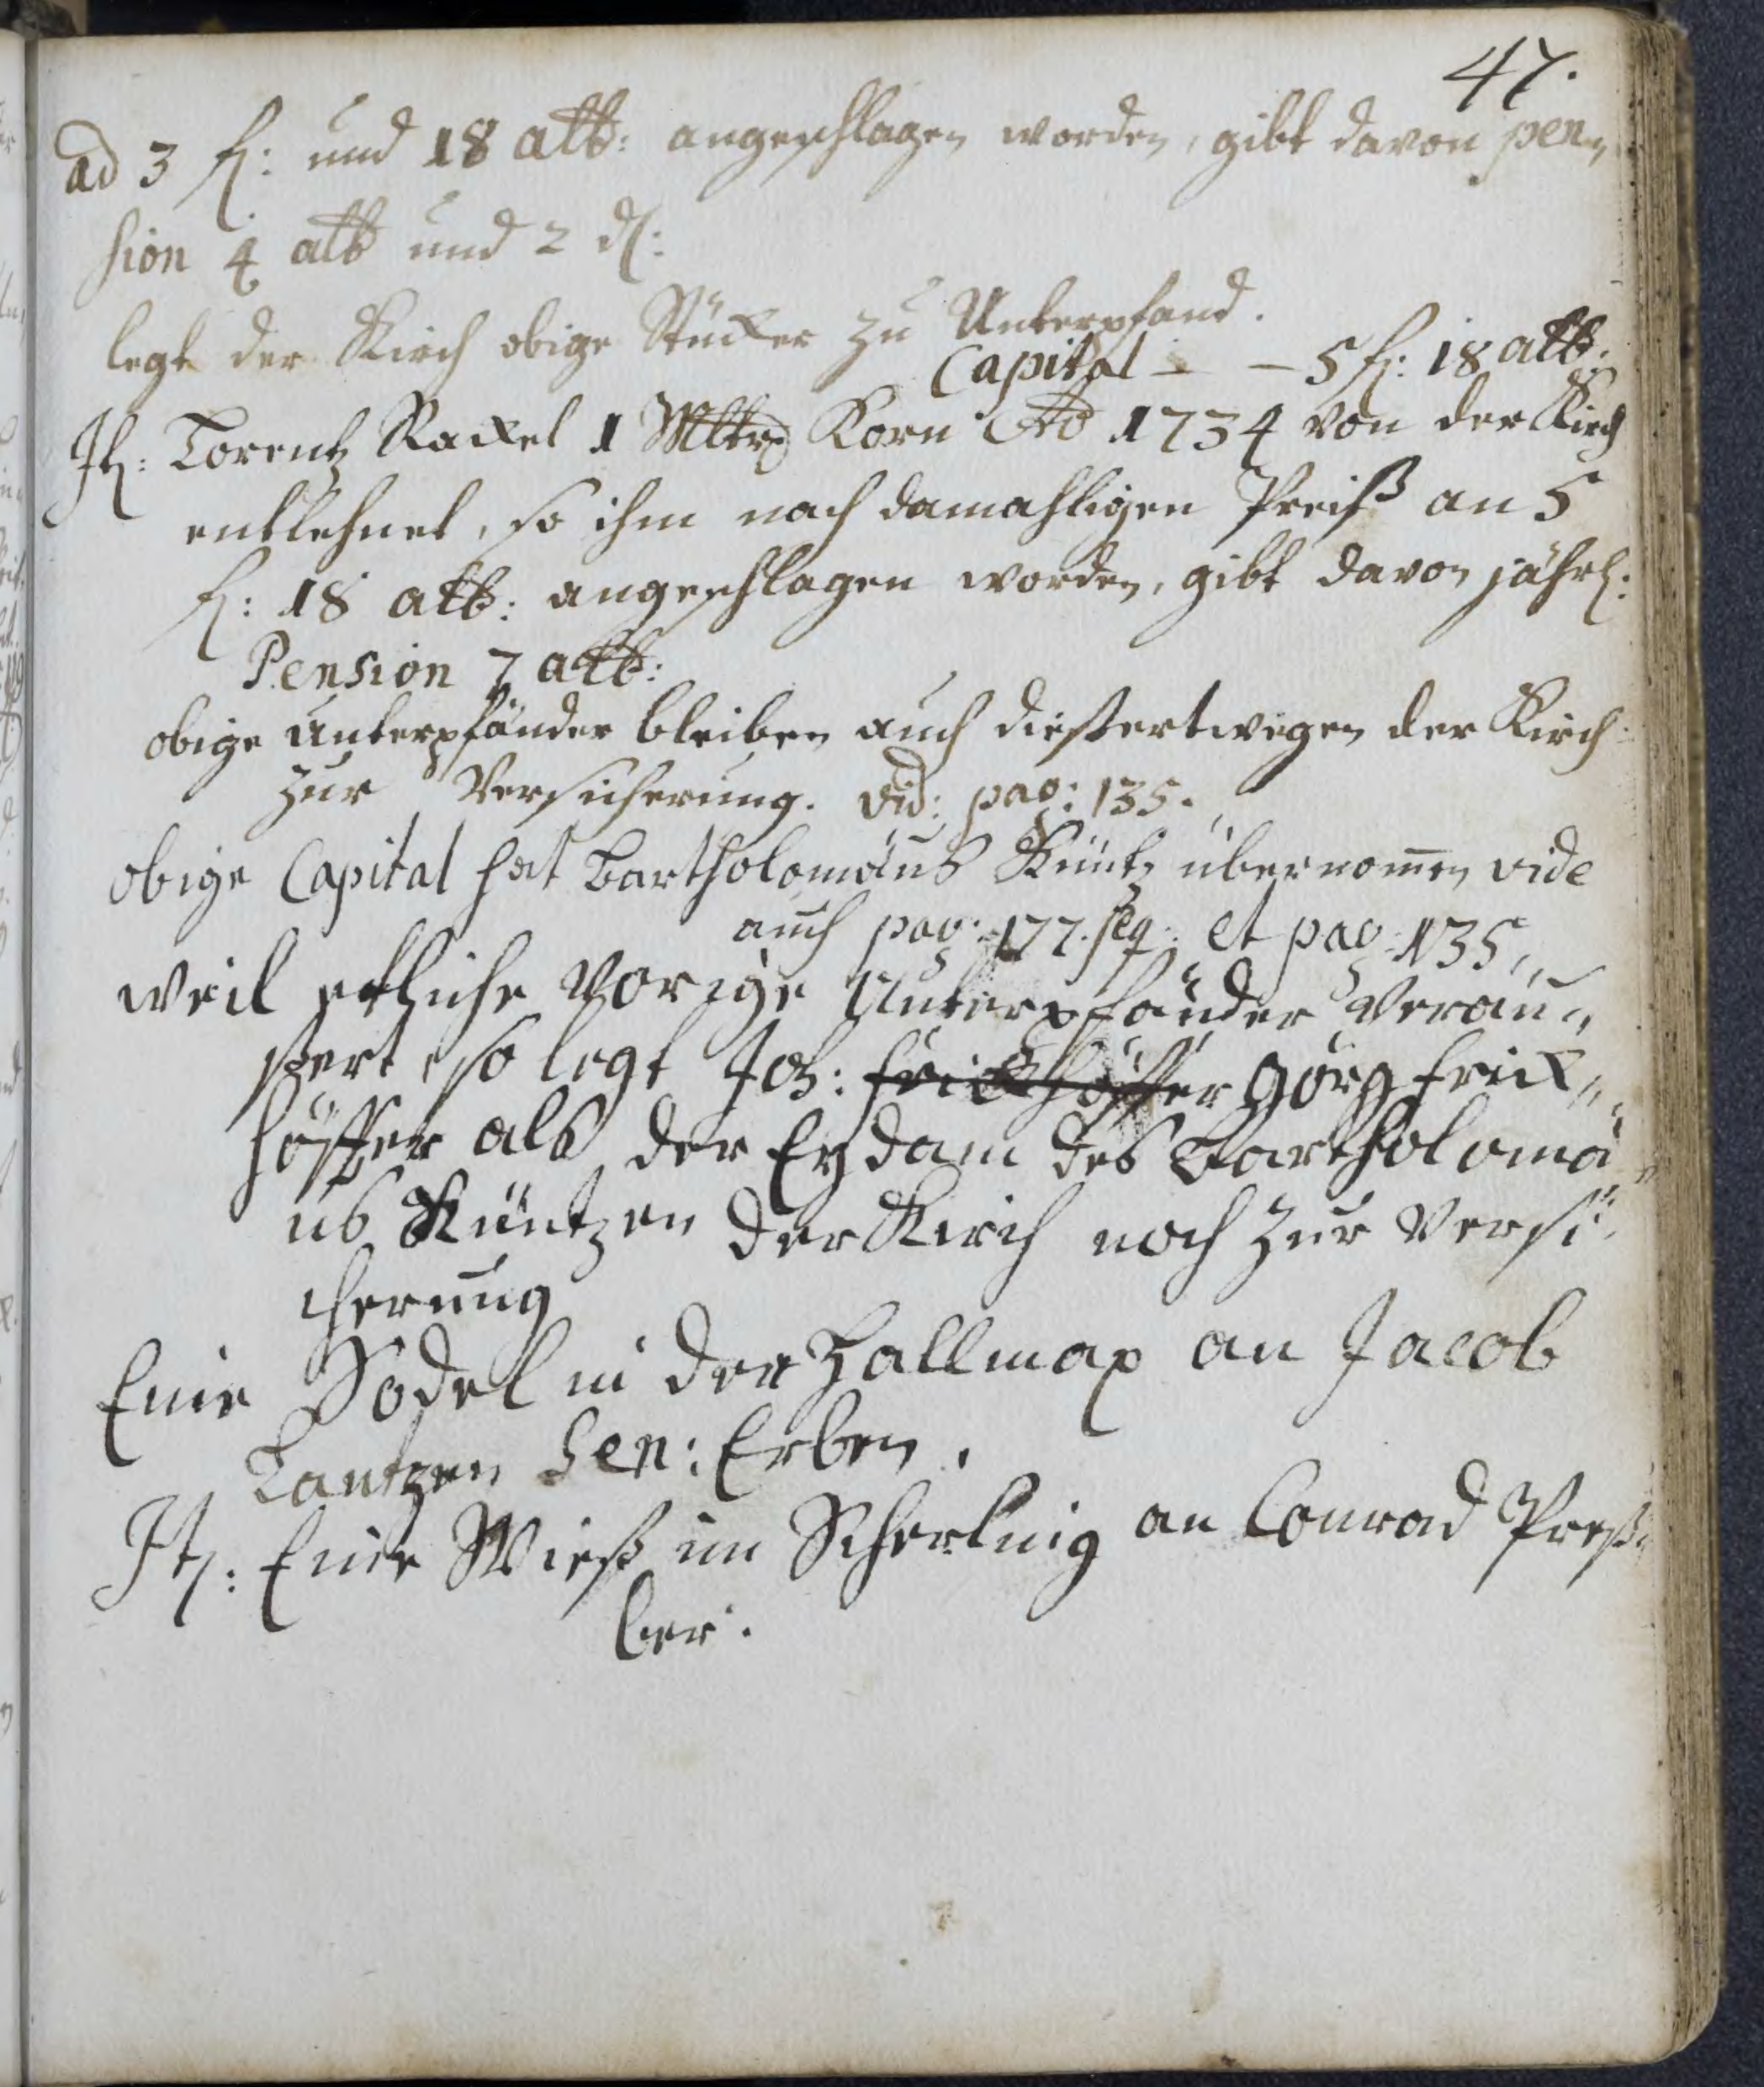 47.
ad 3 fl: und 18 alb: angeschlagen worden, gibt davon pen„
sion 4 alb und 2 d:
legt der Kirch obige Stücker zu Unterpfand.
Capital - - 5 fl: 18 alb:
It: Lorentz Rackel 1 Mltr Korn Ao 1734 von der Kirch
entlehnet, so ihm nach damahligen Preiß an 5
fl: 18 alb: angeschlagen worden, gibt davon jährl:
Pension 7 alb:
obige Unterpfänder bleiben auch dießertwegen der Kirch
zur Versicherung. vid: pag: 135.
obige Capital hat Bartholomäus Küntz übernom̄en vide
auch pag: 177. seq: et pag: 135„
weil etliche vorige Unterpfänder veräu„
ßert, so legt Joh: Frickhöffer Görg Frick„
höffer als der Eydam des Bartholomä„
us Küntzen der Kirch noch zur Versi„
cherung
Eine Sodel in der Hallmax an Jacob
Lantzen Sen: Erben.
It: Eine Wieß im Scherling an Conrad Preß„
ber.